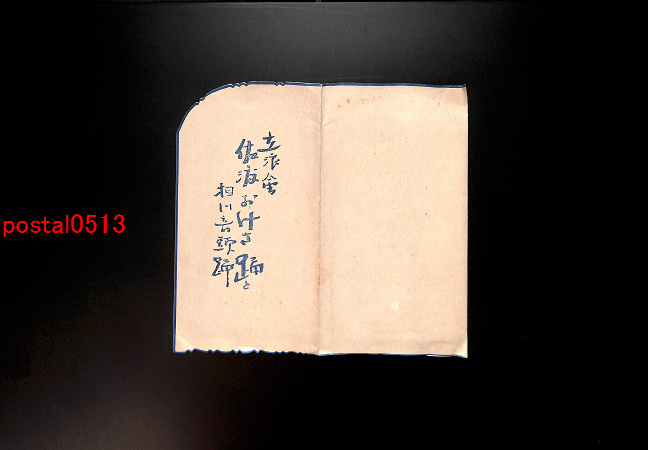 立浪会
佐渡おけさ踊と
相川音頭踊
postal0513